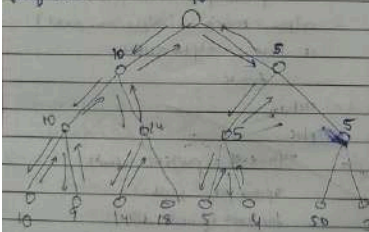 10 5
10 14 5 5
10 9 14 18 5 4 50